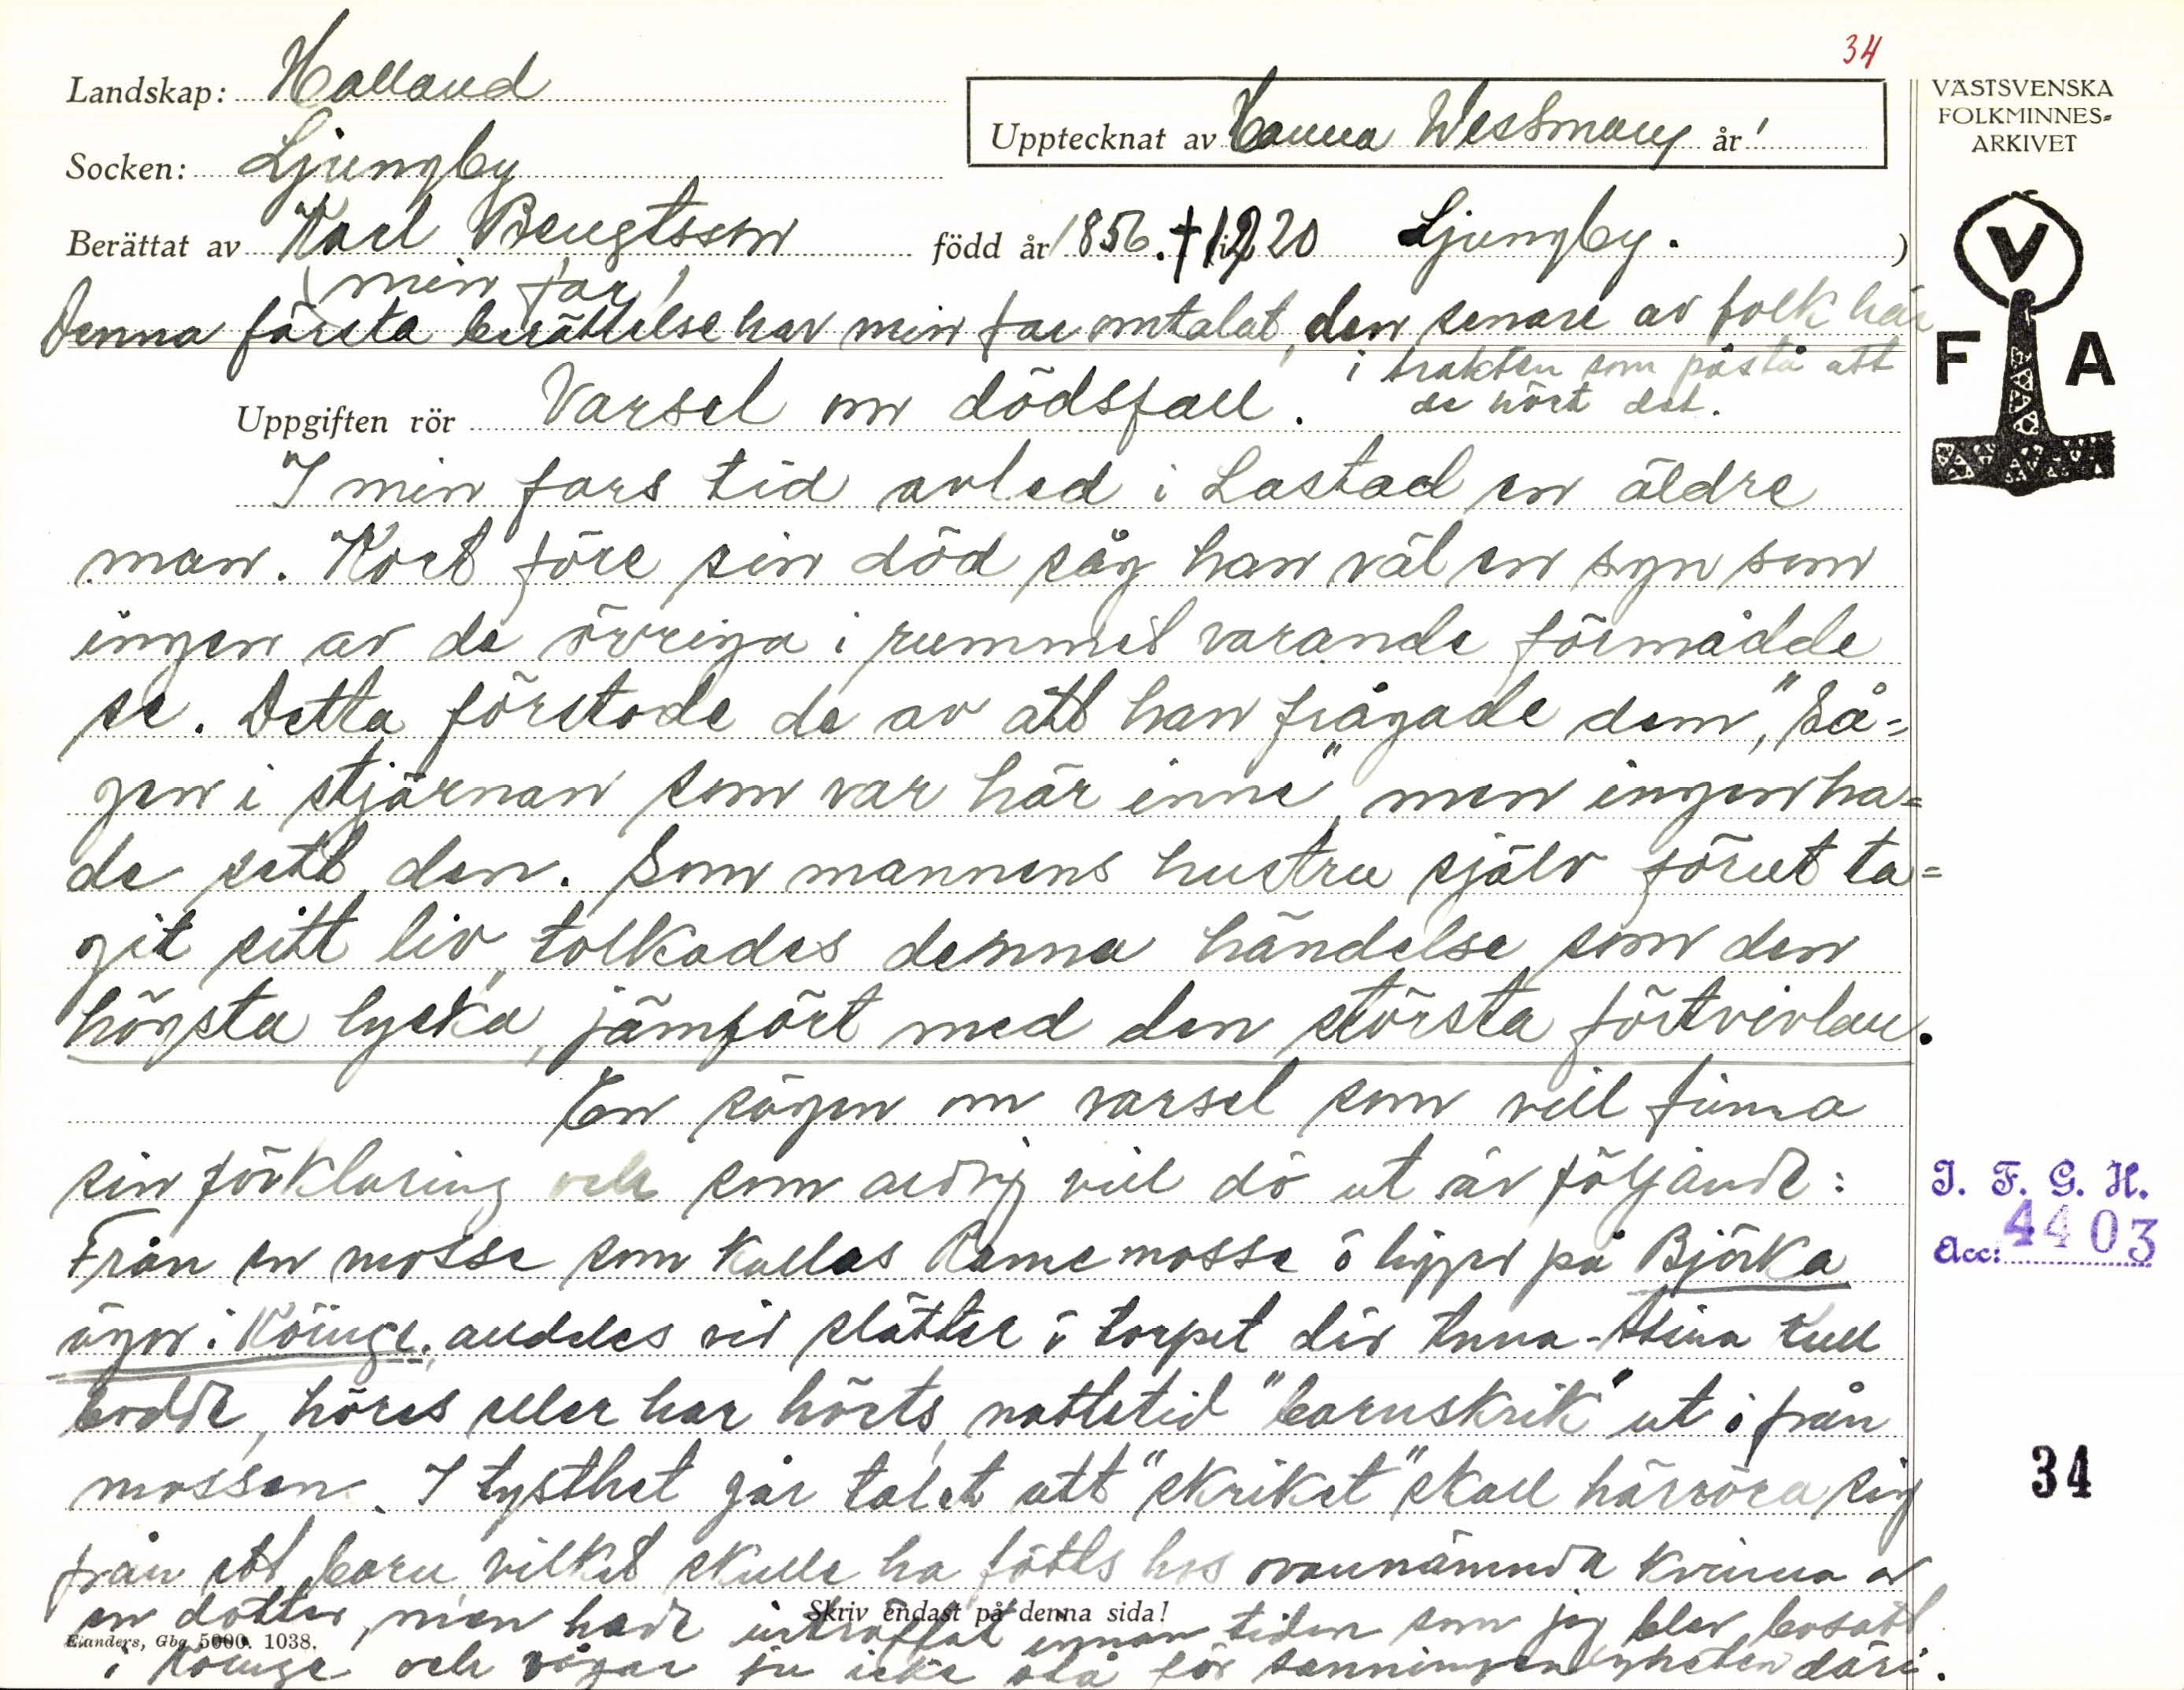 34
Landskap: Halland
VÄSTSVENSKA
FOLKMINNES=
ARKIVET
Upptecknat av Hanna Wessman, år!
Socken: Ljungby
Berättat av Karl Bengtsson född år 1856. † 1920 Ljungby. )
(min far)
Denna första berättelse har min far omtalat, den senare av folk här
i trakten som påstå att
de hört det.
V
F A
Uppgiften rör Varsel om dödsfall.
I min fars tid avled i Lastad en äldre
man. Kort före sin död såg han väl en syn som
ingen av de övriga i rummet varande förmådde
se. Detta förstode de av att han frågade dem, "Så=
gen i stjärnan som var här inne", men ingen ha=
de sett den. Som mannens hustru själv förut ta=
git sitt liv, tolkades denna händelse som den
högsta lycka, jämfört med den största förtvivlan.
En sägen om varsel som vill finna
sin förklaring och som aldrig vill dö ut är följande:
Från en mosse som kallas Ramemosse o ligger på Björka
ägor i Köinge, alldeles vid slätter i torpet där Anna-Stina Kull
bodde, höres eller har hörts, nattetid "barnskrik" ut ifrån
mossen. I tysthet går talet att "skriket" skall härröra sig
från ett barn vilket skulle ha fötts hos ovannämnda kvinna av
en dotter, men hade inträffat innan tiden som jag blev bosatt
i Köinge och vågar ju icke stå för sanningsenligheten däri.
Skriv endast på denna sida!
Elanders, Gbg 5000. 1038.
I. F. G. H.
Acc: 4403
34